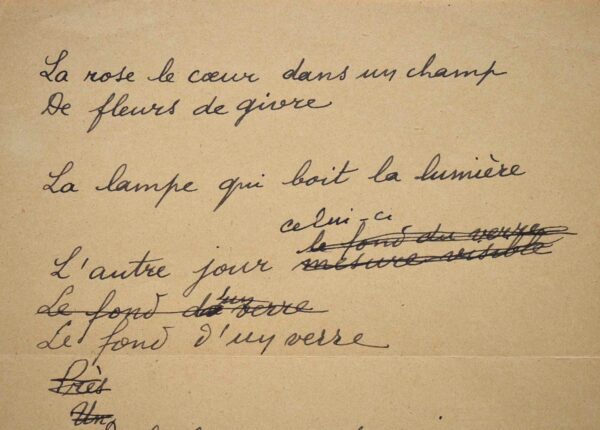 La rose le cœur dans un champ
De fleurs de givre
La lampe qui boit la lumière
celui-ci
le fond du verre
L'autre jour mesure visible
Le fond d'un verre
Le fond d'un verre
Près
Un